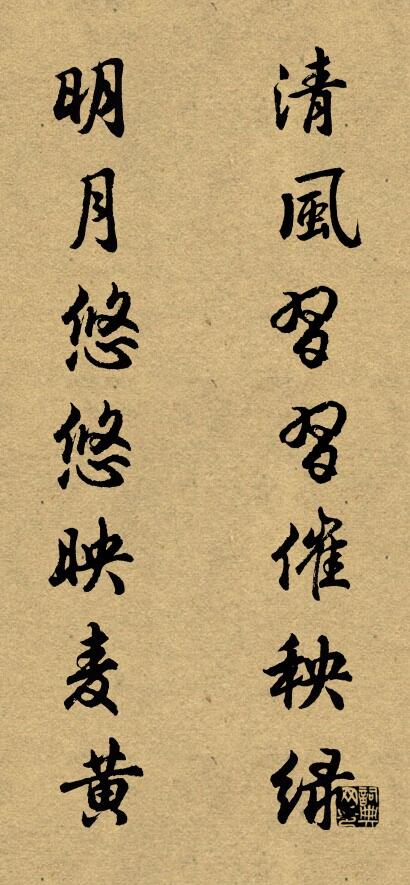 清風習習催秧綠
明月悠悠映麦黄